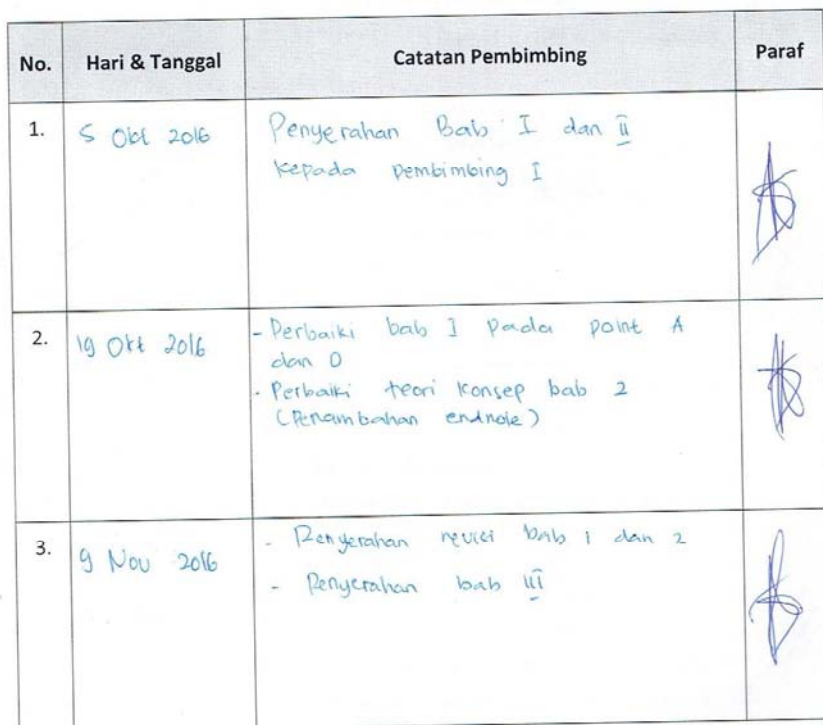 No. Hari & Tanggal Catatan Pembimbing Paraf
1. 5 Okt 2016 Penyerahan Bab I dan II
kepada pembimbing I
2. 19 Okt 2016 - Perbaiki bab I pada point A
dan D
- Perbaiki teori konsep bab 2
(Penambahan endnote)
3. 9 Nov 2016 - Penyerahan revisi bab 1 dan 2
- Penyerahan bab III